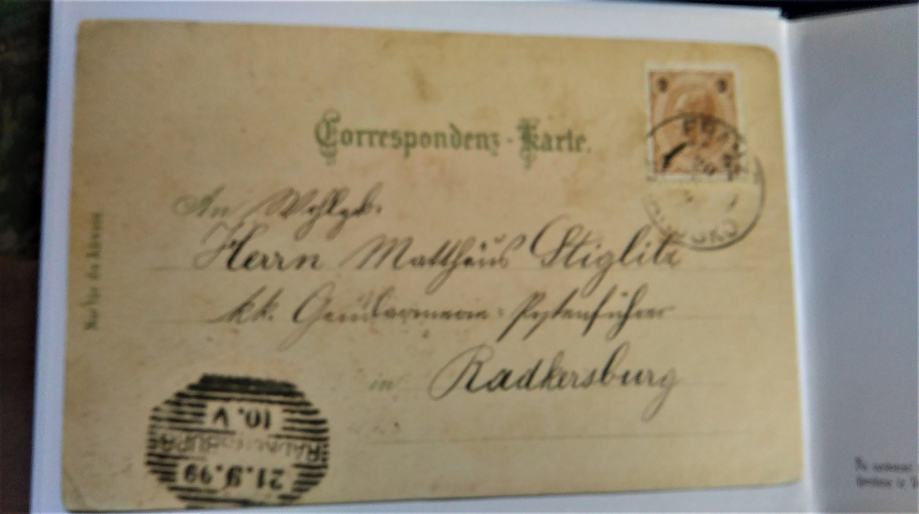 Correspondenz-Karte.
An Wohlgeb.
Herrn Matthäus Stiglitz
kk. Gendarmerie-Postenführer
in Radkersburg
Nur für die Adresse.
RADKERSBURG
21.9.99
10.V